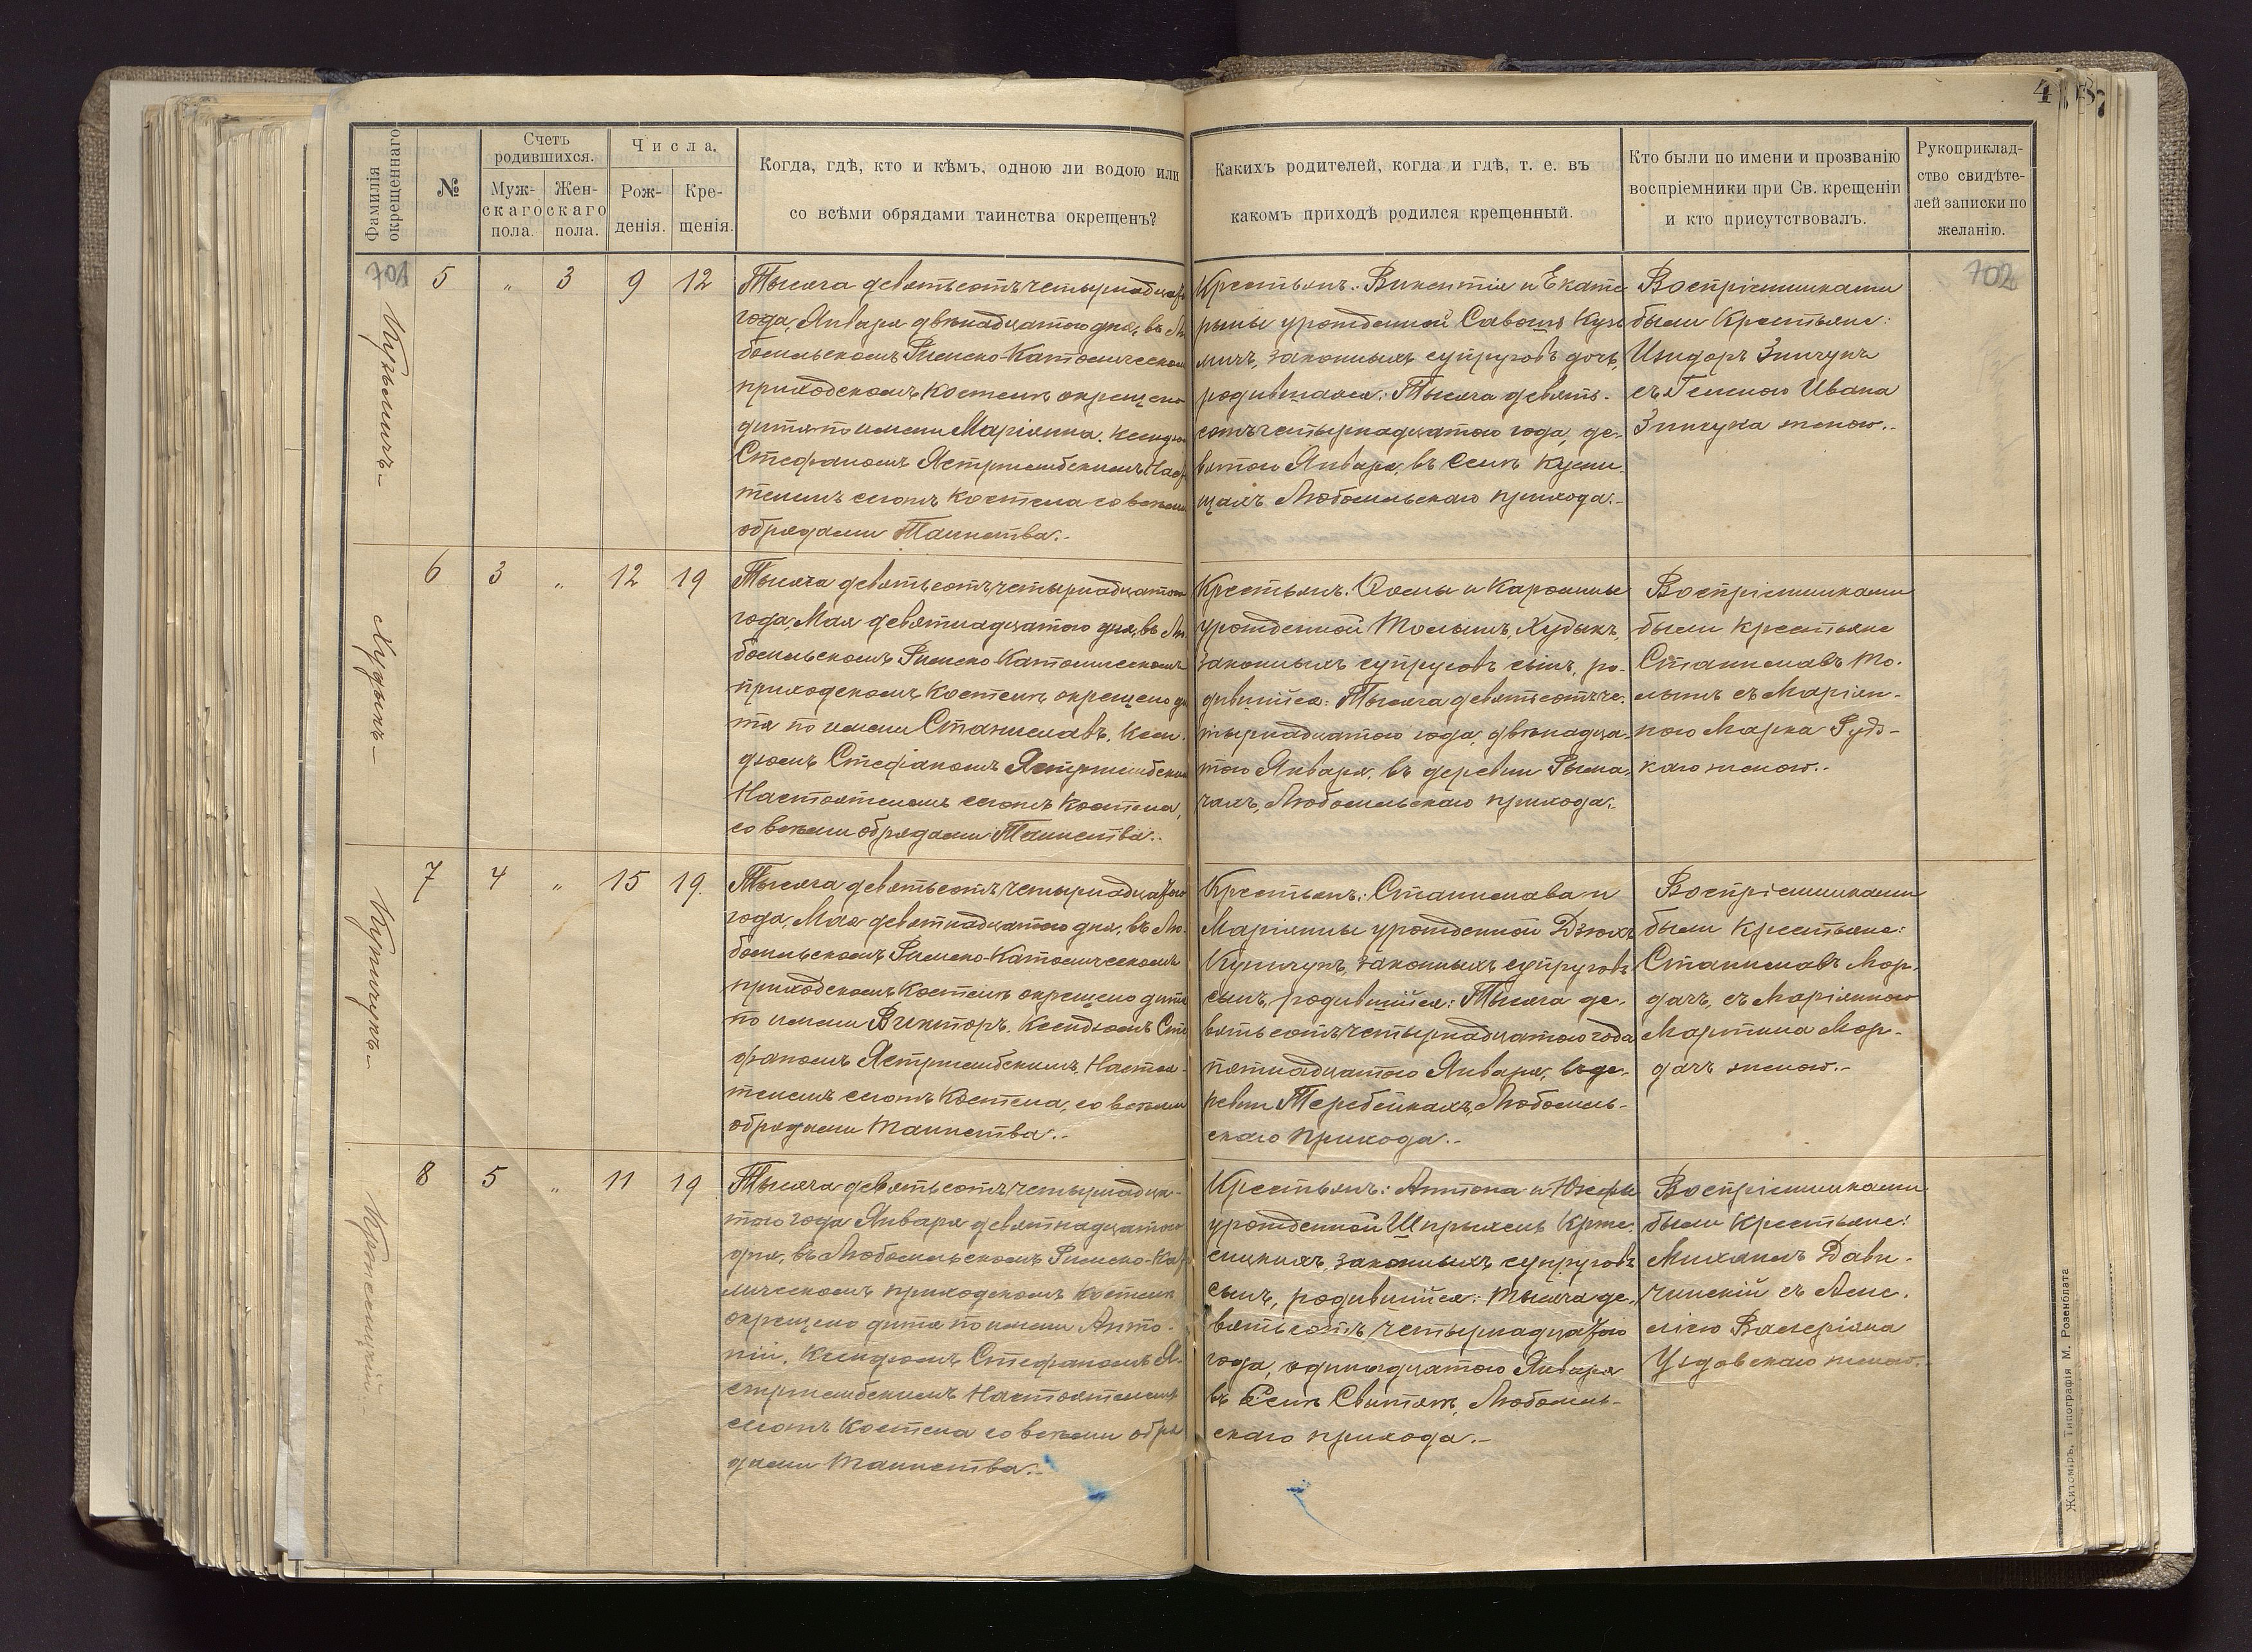 Фамилія окрещеннаго
№
Счетъ родившихся.
Муж-
скаго
пола.
Жен-
скаго
пола.
Числа.
Рож-
денія.
Кре-
щенія.
Когда, гдѣ, кто и кѣмъ, одною ли водою или
со всѣми обрядами таинства окрещенъ?
Какихъ родителей, когда и гдѣ, т. е. въ
какомъ приходѣ родился крещенный.
Кто были по имени и прозванію
воспріемники при Св. крещеніи
и кто присутствовалъ.
Рукоприклад-
ство свидѣте-
лей записки по
желанію.
701
5 „ 3 9 12
Тысяча девятьсотъ четырнадцатаго
года, Января двѣнадцатаго дня, въ Лю
бомльскомъ Римско-Католическомъ
приходскомъ Костелѣ окрещено
дитя по имени Маріянна, Ксендзомъ
Стефаномъ Ястржембскимъ Насто
телемъ сего Костела со всѣми
обрядами Таинства.
Крестьянъ: Викентія и Екате
рины урожденной Савошъ Кузь
мичъ, законныхъ супруговъ дочь,
родившаяся: Тысяча девять-
сотъ четырнадцатаго года, де-
вятаго Января, въ селѣ Кусни-
щахъ Любомльскаго прихода.-
Воспріемниками
были Крестьяне:
Изидоръ Зинчукъ
съ Геленою Ивана
Зинчука женою.-
702
6 3 „ 12 19
Худыкъ-
Тысяча девятьсотъ четырнадцатаго
года, Мая девятнадцатаго дня, въ Лю-
бомльскомъ Римско-Католическомъ
приходскомъ Костелѣ окрещено ди
тя по имени Станиславъ, Ксен-
дзомъ Стефаномъ Ястржембскимъ
Настоятелемъ сего Костела,
со всѣми обрядами Таинства.-
Крестьянъ: Ѳомы и Каролины
урожденной Худыкъ,
законныхъ супруговъ сынъ, ро-
дившійся: Тысяча девятьсотъ че-
тырнадцатаго года, двѣнадца-
таго Января, въ деревни Рыма-
чахъ, Любомльскаго прихода.
Воспріемниками
были Крестьяне
Станиславъ
съ Маріян-
ною Марка Рудз-
каго женою.-
7 4 „ 15 19.
Купчукъ-
Тысяча девятьсотъ четырнадцатаго
года, Мая девятнадцатаго дня, въ Лю-
бомльскомъ Римско-Католическомъ
приходскомъ Костелѣ окрещено дитя
по имени Викторъ, Ксендзомъ Сте
фаномъ Ястржембскимъ, Настоя-
телемъ сего Костела, со всѣми
обрядами таинства.-
Крестьянъ: Станислава и
Маріянны урожденной Дзюкъ
Купчукъ, законныхъ супруговъ
сынъ, родившійся: Тысяча де-
вятьсотъ четырнадцатаго года
пятнадцатаго Января, въ де-
ревни Теребейкахъ, Любомль-
скаго прихода.-
Воспріемниками
были Крестьяне:
Станиславъ Мор-
дачъ, съ Маріянною
Мартина Мор-
дачъ женою.-
8 5 „ 11 19
Тысяча девятьсотъ четырнадца-
таго года Января девятнадцатаго
дня, въ Любомльскомъ Римско-Като
лическомъ приходскомъ Костелѣ
окрещено дитя по имени Анто-
ній, Ксендзомъ Стефаномъ Я-
стржембскимъ Настоятелемъ
сего Костела со всѣми обря
дами таинства.-
Крестьянъ: Антона и Юзефы
урожденной
законныхъ супруговъ
сынъ, родившійся: тысяча де-
вятьсотъ четырнадцатаго
года, одинадцатаго Января
въ Селѣ Свитязѣ, Любомль-
скаго прихода.-
Воспріемниками
были Крестьяне:
Михаилъ Дави-
чинскій съ Аме-
ліею Валеріяна
женою.
Житоміръ, Типографія М. Розенблата